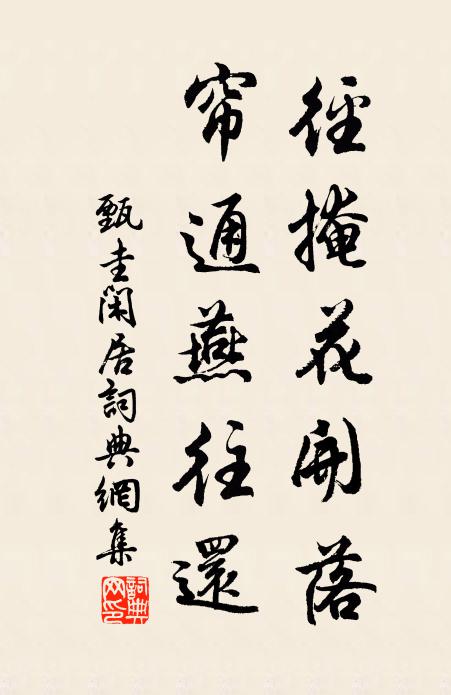 徑掩花開落
帘通燕往還
甄圭閑居詞典網集
詞典網印